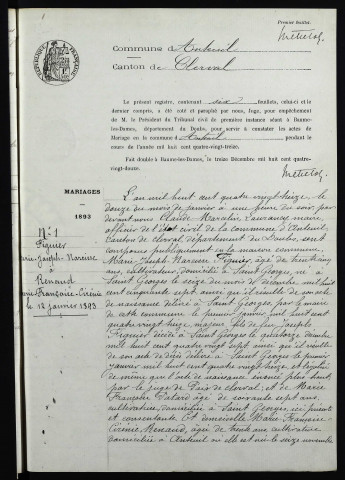 Premier feuillet.
Commune d'Anteuil
Canton de Clerval
RÉPUBLIQUE FRANÇAISE
Le présent registre, contenant six feuillets, celui-ci et le
dernier compris, a été coté et paraphé par nous, Juge, pour empêchement
de M. le Président du Tribunal civil de première instance séant à Baume-
les-Dames, département du Doubs, pour servir à constater les actes de
Mariage en la commune d'Anteuil pendant le
cours de l'année mil huit cent quatre-vingt-treize.
Fait double à Baume-les-Dames, le treize Décembre mil huit cent quatre-
vingt-douze.
MARIAGES
1893
N° 1
Figuet
Marie-Joseph-Narcisse
&
Renaud
Marie-Françoise-Cirénie
le 12 janvier 1893
L'an mil huit cent quatre vingt treize, le
douze du mois de janvier à une heure du soir par
devant nous Claude maire
officier de l'état civil de la commune d'Anteuil,
canton de Clerval, département du Doubs, sont
comparus publiquement en la maison commune,
Marie Joseph Narcisse Figuet, âgé de trente cinq
ans, cultivateur, domicilié à Saint Georges, né à
Saint Georges le seize du mois de décembre mil huit
cent cinquante sept ainsi qu'il résulte de son acte
de naissance délivré à Saint Georges par le maire
de cette commune le premier janvier mil huit cent
quatre vingt treize, majeur, fils de feu Joseph
Figuet décédé à Saint Georges le quatorze
mil huit cent quatre vingt sept, ainsi qu'il résulte
de son acte de décès délivré à Saint Georges le premier
janvier mil huit cent quatre vingt treize, et légalisé
de même que l'acte de naissance énoncé plus haut
par le juge de Paix de Clerval; et de Marie
Françoise Patard âgée de soixante sept ans,
cultivatrice, domiciliée à Saint Georges, ici présente
et consentante. Et demoiselle Marie Françoise
Cirénie Renaud, âgée de trente ans cultivatrice
domiciliée à Anteuil où elle est née le seize novembre